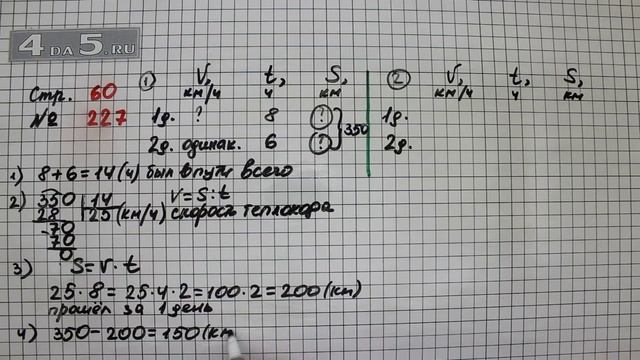 4 DA 5.RU
Стр. 60
№ 227
1 V, t, S,
км/ч ч км
1д. ? 8 ? } 350
2д. одинак. 6 ?
2 V, t, S,
км/ч ч км
1д.
2д.
1) 8+6=14(ч) был в пути всего
2) 350 | 14 V=S:t
28 25 (км/ч) скорость теплохора
-70
70
0
3) S=V·t
25·8=25·4·2=100·2=200(км)
прошёл за 1 день
4) 350-200=150(км